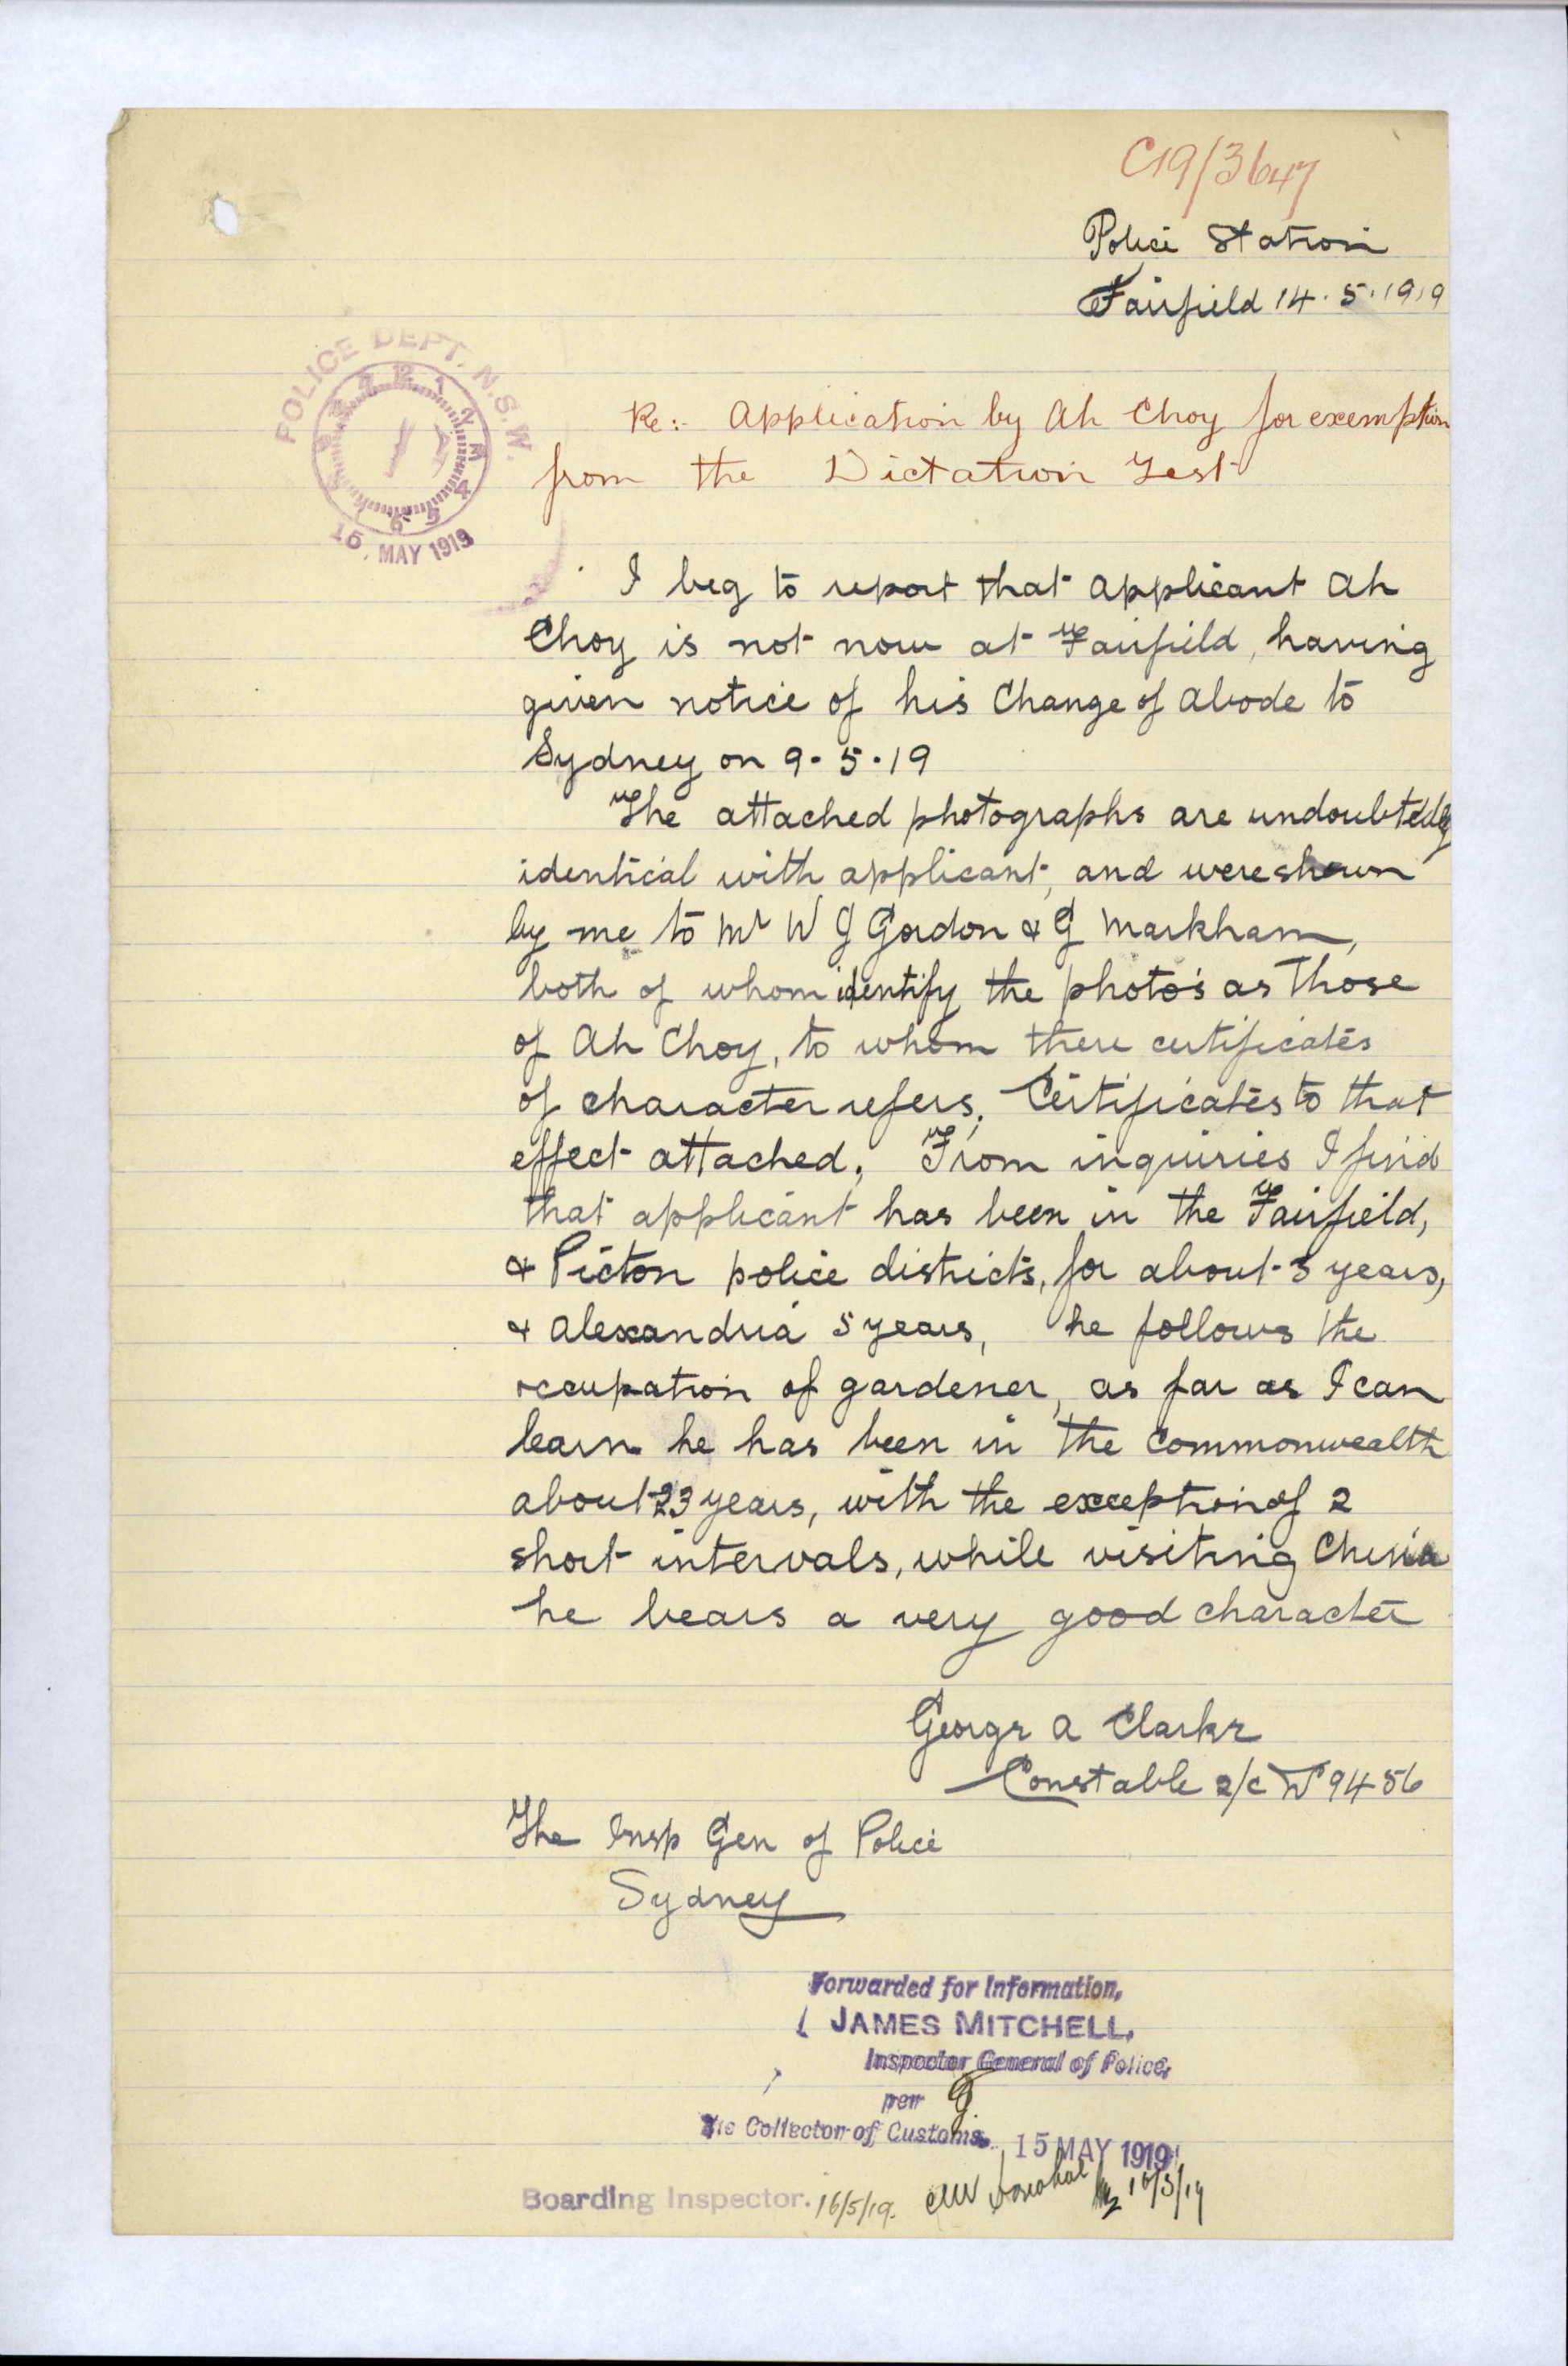 C19/3647
Police Station
Fairfield 14.5.1919
POLICE DEPT. N.S.W.
15. MAY 1919
Re:- Application by Ah Choy for exemption
from the Dictation Test
I beg to report that applicant Ah
Choy is not now at Fairfield, having
given notice of his Change of abode to
Sydney on 9.5.19
The attached photographs are undoubtedly
identical with applicant, and were shown
by me to Mr W G Gordon & G Markham,
both of whom identify the photo's as Those
of Ah Choy, to whom there certificates
of character refers. Certificates to that
effect attached. From inquiries I find
that applicant has been in the Fairfield,
& Picton police districts, for about 3 years,
& Alexandria 5 years, he follows the
occupation of gardener, as far as I can
learn he has been in the Commonwealth
about 23 years, with the exception of 2
short intervals, while visiting China
he bears a very good character
George A Clarke
Constable 2/c No 9456
The Insp Gen of Police
Sydney
Forwarded for Information,
JAMES MITCHELL,
Inspector General of Police,
per G
The Collector of Customs. 15 MAY 1919
Boarding Inspector. 16/5/19. 16/5/19